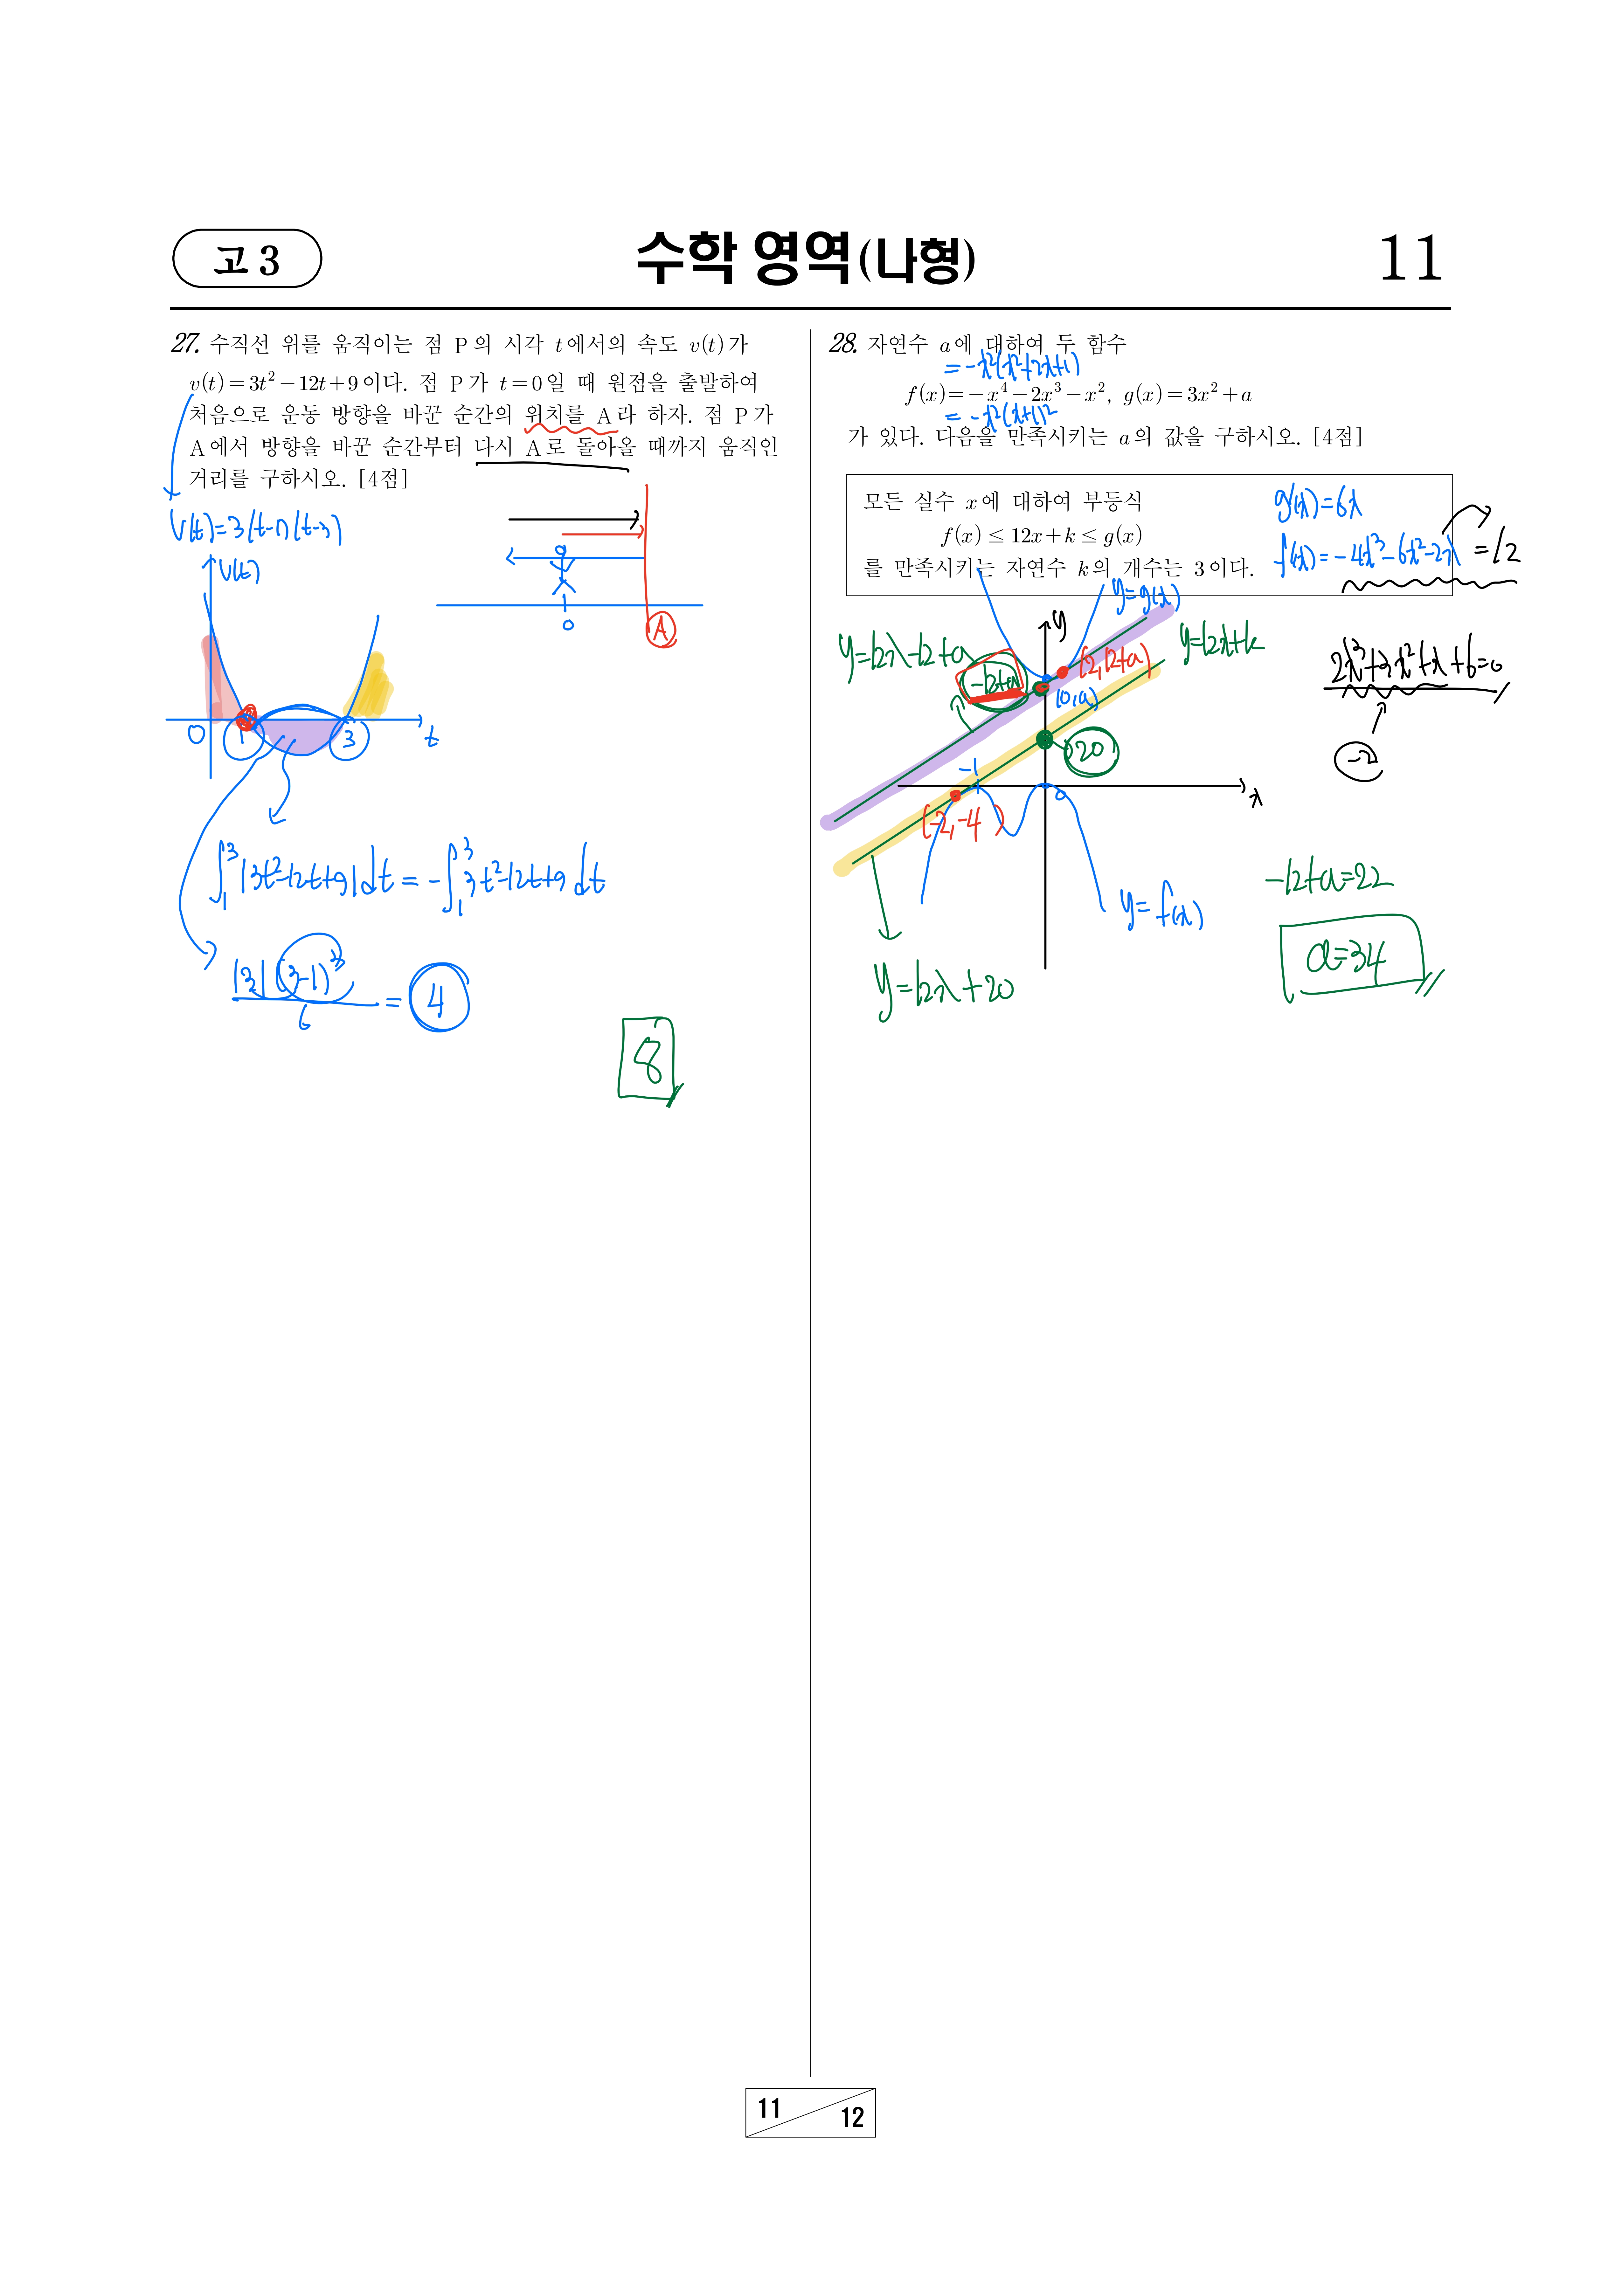 고 3
수학 영역(나형)
11
27. 수직선 위를 움직이는 점 P의 시각 t에서의 속도 v(t)가
v(t)=3t²−12t+9이다. 점 P가 t=0일 때 원점을 출발하여
처음으로 운동 방향을 바꾼 순간의 위치를 A라 하자. 점 P가
A에서 방향을 바꾼 순간부터 다시 A로 돌아올 때까지 움직인
거리를 구하시오. [4점]
V(t)=3(t-1)(t-3)
V(t)
0
1
3
t
0
A
∫₁³|3t²-12t+9|dt = -∫₁³3t²-12t+9 dt
|3|(3-1)³
6
= 4
8
28. 자연수 a에 대하여 두 함수
=-x²(x²+2x+1)
f(x)=−x⁴−2x³−x², g(x)=3x²+a
=-x²(x+1)²
가 있다. 다음을 만족시키는 a의 값을 구하시오. [4점]
모든 실수 x에 대하여 부등식
f(x)≤12x+k≤g(x)
를 만족시키는 자연수 k의 개수는 3이다.
g'(x)=6x
f'(x)=-4x³-6x²-2x =12
2x³+3x²+x+6=0
-2
y=g(x)
y
y=12x-12+a
-12+a
(2,12+a)
y=12x+k
(0,a)
20
-1
0
x
(-2,-4)
y=f(x)
y=12x+20
-12+a=22
a=34
11
12